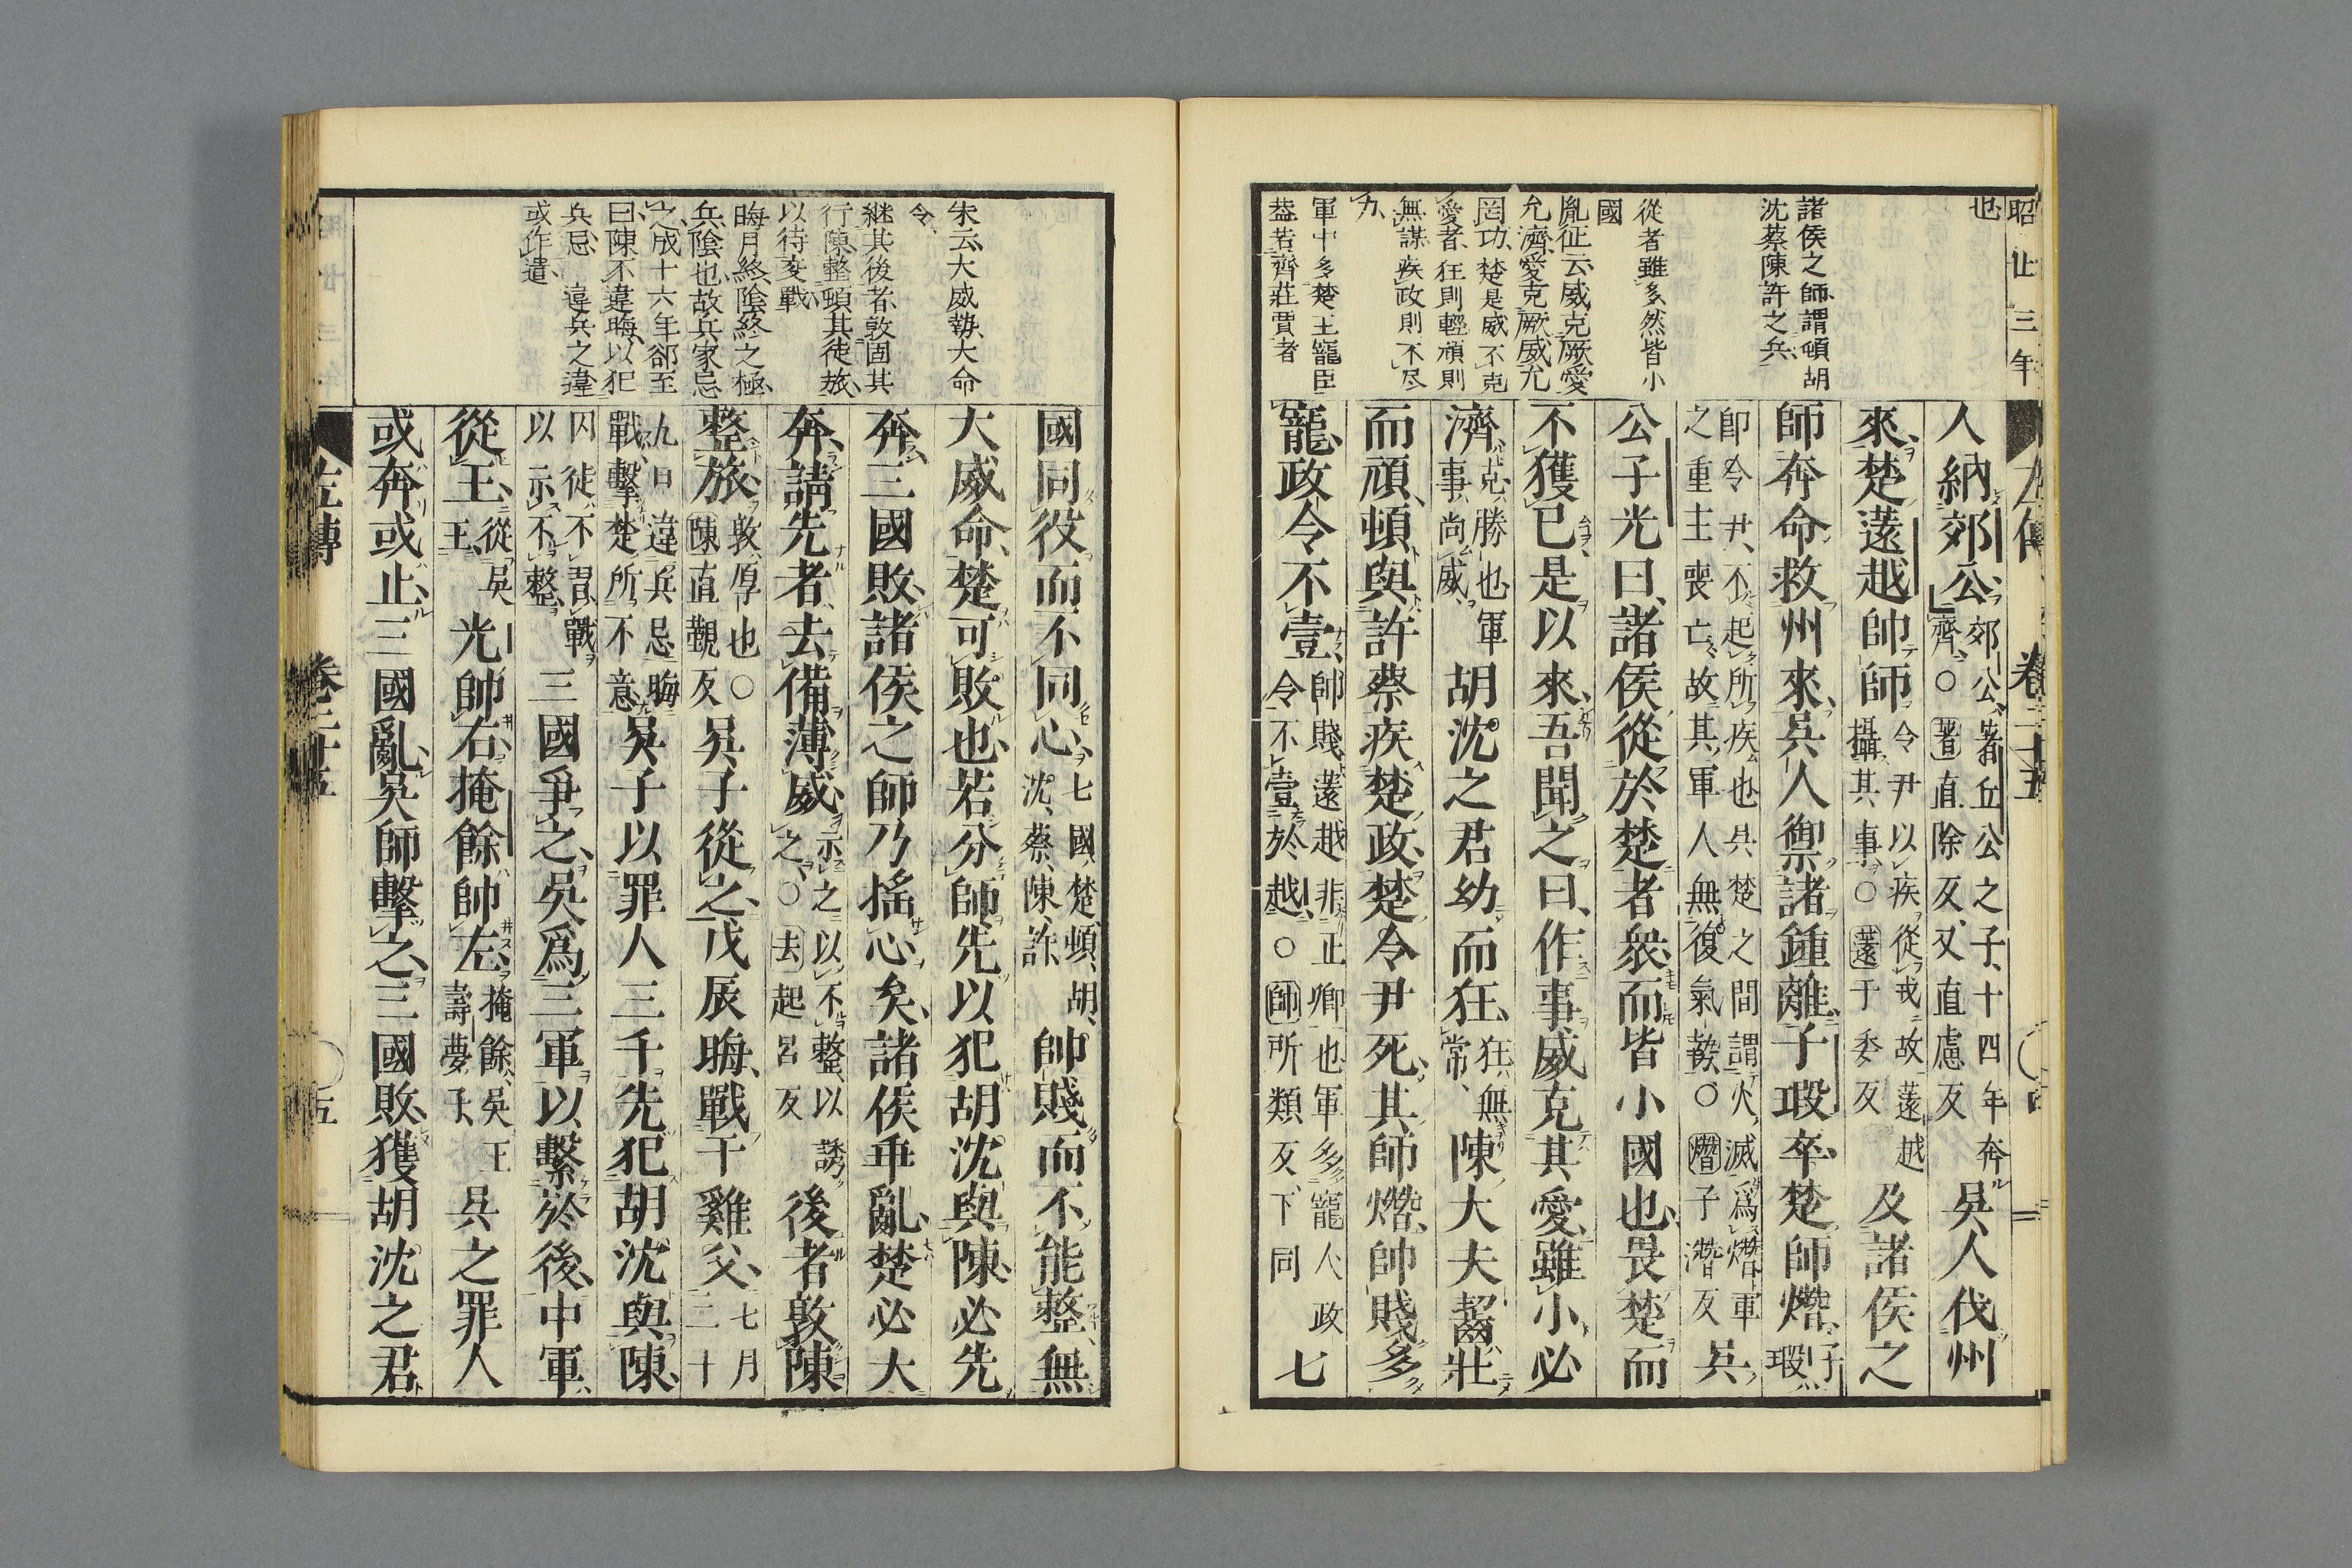 昭廿三年
也
諸侯之師謂頓胡
沈蔡陳許之兵
從者雖多然皆小
國
胤征云威克厥愛
允濟愛克厥威允
罔功楚是威不克
愛者狂則輕頑則
無謀疾政則不尽
力
軍中多楚王寵臣
蓋若齊莊賈者
左傳 卷二十五 四
人納郊公郊公著丘公之子十四年奔
齊〇著直除反又直慮反吳人伐州
來楚薳越帥師令尹以疾從戎故薳越
攝其事〇薳于委反及諸侯之
師奔命救州來吳人禦諸鍾離子瑕卒楚師熸子
瑕
即令尹不起所疾也具楚之間謂火滅爲熸軍
之重主喪亡故其軍人無復氣埶〇熸子潛反吳
公子光曰諸侯從於楚者衆而皆小國也畏楚而
不獲已是以來吾聞之曰作事威克其愛雖小必
濟克勝也軍
事尚威胡沈之君幼而狂狂無
常陳大夫齧壯
而頑頓與許蔡疾楚政楚令尹死其師熸帥賤多
寵政令不壹帥賤薳越非正卿也軍多寵人政
令不壹於越〇帥所類反下同七
國同役而不同心七國楚頓胡
沈蔡陳許帥賤而不能整無
大威命楚可敗也若分師先以犯胡沈與陳必先
奔三國敗諸侯之師乃搖心矣諸侯乖亂楚必大
奔請先者去備薄威示之以不整以誘
之〇去起呂反後者敦陳
整旅敦厚也〇
陳直覲反吳子從之戊辰晦戰于雞父七月
二十
九日違兵忌晦
戰擊楚所不意吳子以罪人三千先犯胡沈與陳
囚徒不習戰
以示不整三國爭之吳爲三軍以繫於後中軍
從王從吳
王光帥右掩餘帥左掩餘吳王
壽夢子吳之罪人
或奔或止三國亂吳師擊之三國敗獲胡沈之君
朱云大威埶大命
令
継其後者敦固其
行陳整頓其徒旅
以待变戰
晦月終陰終之極
兵陰也故兵家忌
之成十六年郤至
曰陳不違晦以犯
兵忌 違兵之違
或作遣
左傳 卷二十五 五